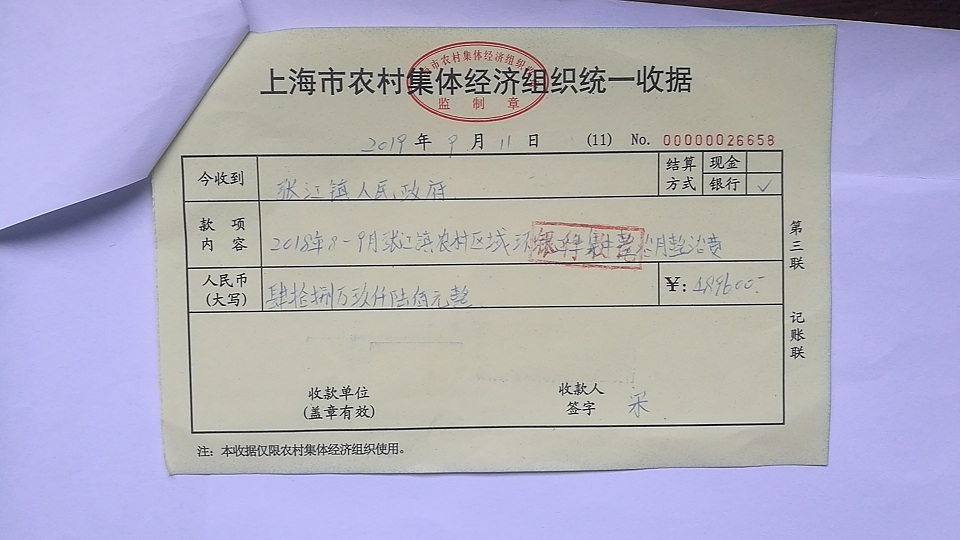 上海市农村集体经济组织统一收据
监制章
2019年9月11日 (11) No. 00000026658
今收到 张江镇人民政府 结算方式 现金
银行 ✓
款项内容 2018年8-9月张江镇农村区域 月整治费
人民币(大写) 肆拾捌万玖仟陆佰元整 ¥: 489600-
收款单位(盖章有效) 收款人签字
注：本收据仅限农村集体经济组织使用。
第三联 记账联